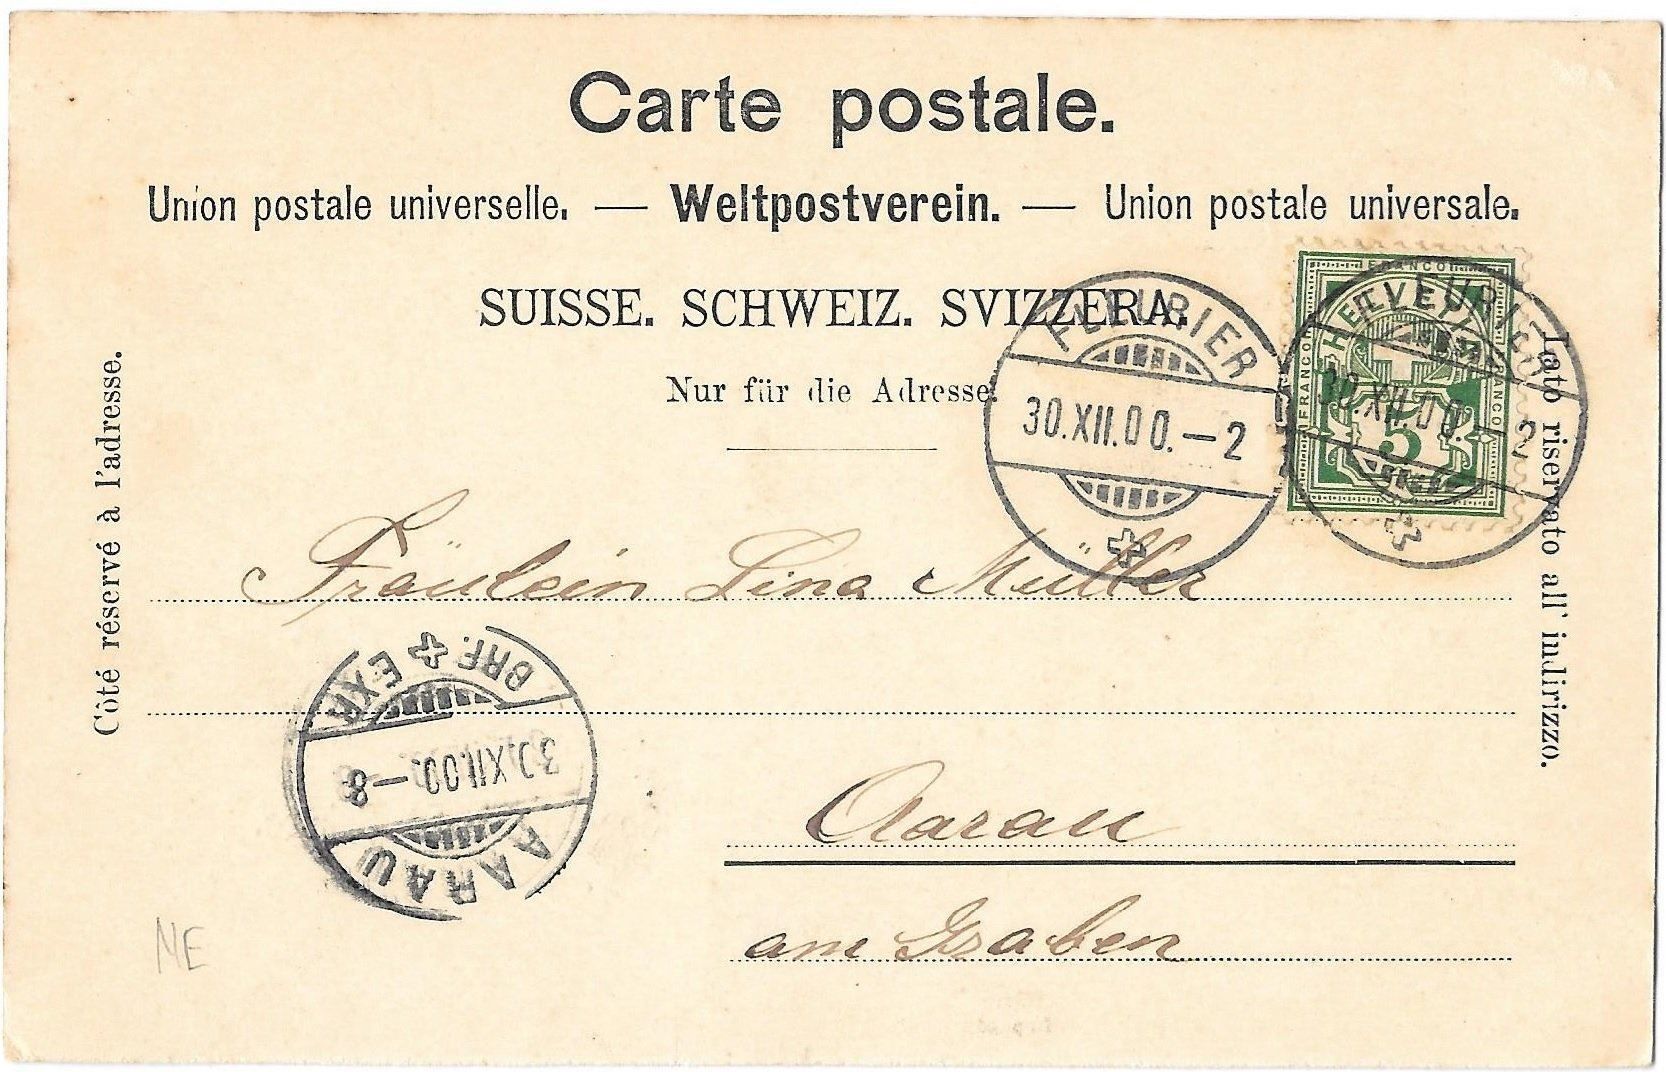 Carte postale.
Union postale universelle. — Weltpostverein. — Union postale universale.
SUISSE. SCHWEIZ. SVIZZERA.
Nur für die Adresse.
Côté réservé à l'adresse.
Lato riservato all' indirizzo.
FLEURIER
30.XII.00.-2
FLEURIER
30.XII.00.-2
FRANCO
HELVETIA
FRANCO
FRANCO
5
Fräulein Lina Müller
BRF. EXP.
30.XII.00.-8
AARAU
Aarau
am Graben
NE